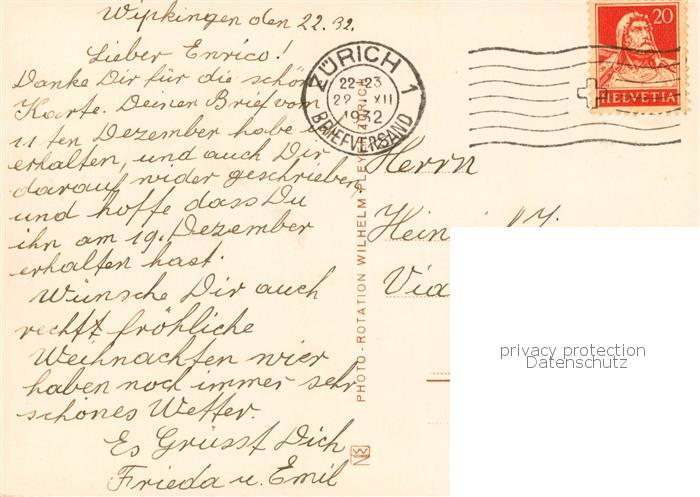 Wipkingen den 22.32.
Lieber Enrico!
Danke Dir für die schöne
Karte. Deinen Brief vom
11ten Dezember habe i
erhalten, und auch Dir
darauf wider geschrieben,
und hoffe dass Du
ihn am 19. Dezember
erhalten hast.
Wünsche Dir auch
recht fröhliche
Weihnachten wier
haben noch immer sehr
schönes Wetter.
Es Grüsst Dich
Frieda u. Emil
ZÜRICH 1
22-23
22.XII
1932
BRIEFVERSAND
20
HELVETIA
Herrn
Via
PHOTO-ROTATION WILHELM PLEYER ZÜRICH
privacy protection
Datenschutz